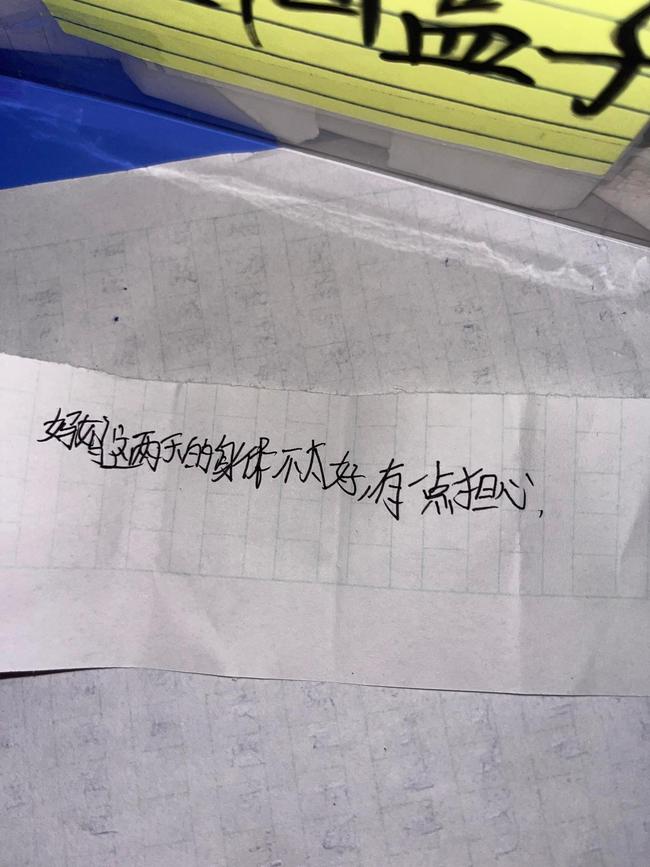 盒子
妈妈这两天的身体不太好,有一点担心,